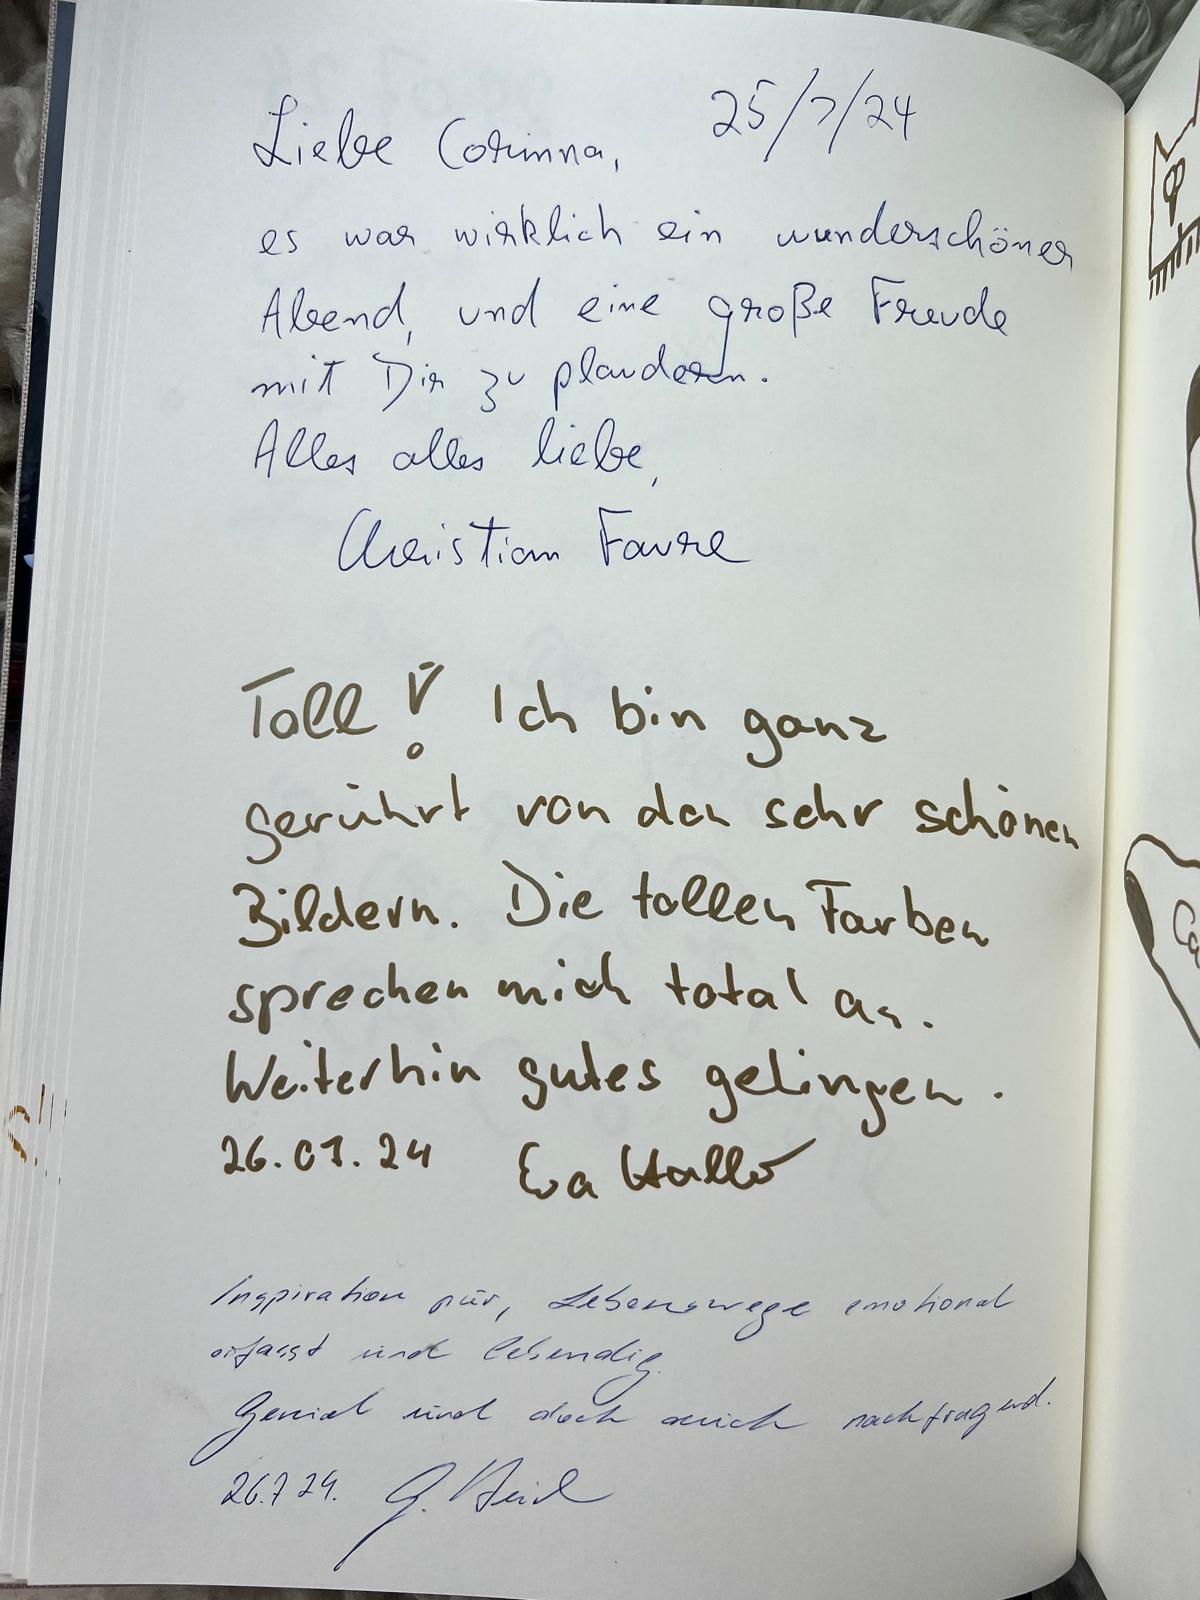 25/7/24
Liebe Corinna,
es war wirklich ein wunderschöner
Abend, und eine große Freude
mit Dir zu plaudern.
Alles alles liebe,
Christian Favre
Toll! Ich bin ganz
gerührt von den sehr schönen
Bildern. Die tollen Farben
sprechen mich total an.
Weiterhin gutes gelingen.
26.07.24 Eva
Inspiration pur, Lebenswege emotional
erfasst und lebendig
Genial und doch auch nachfragend.
26.7 24. G.